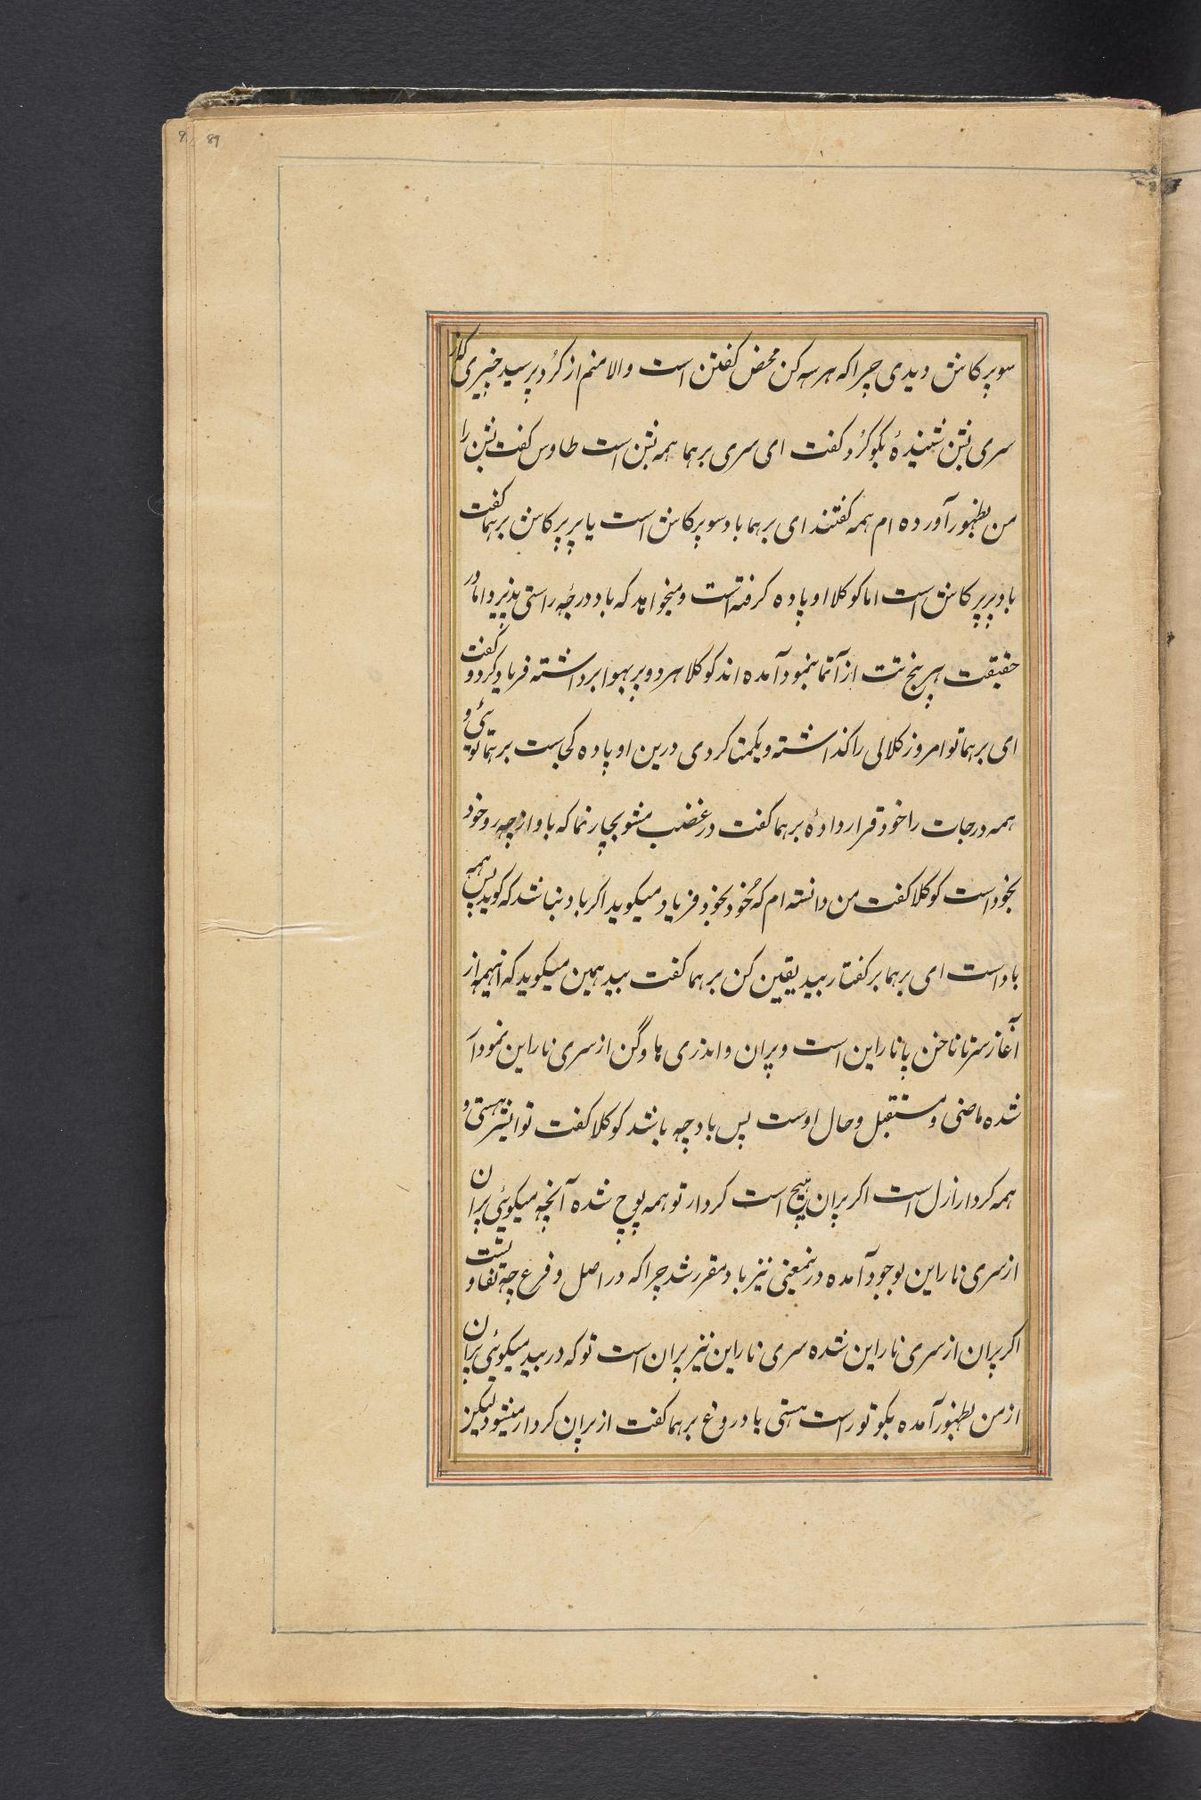 89
سوپرکاش دیدی چرا که هر سه کن محض کفتن است والا منم از کرُد پرسید چیزی کنار
سری بشن شنیدهٔ بکو کرُد کفت ای سری برهما همه بشن است طاوس کفت بشن را
من بظهور آورده ام همه کفتند ای برهما باد سوپرکاش است یا پرپرکاش برهما کفت
باد پرپرکاش است اما کوکلا اوپاده کرفته است و میخواهد که باد درجهٔ راستی پذیرد اما در
حقیقت هر پنج تت از آتما بنمود آمده اند کوکلا هر دو پر بهوا برداشته فریاد کرد و کفت
ای برهما تو امروز کلالی را کذاشته و یکمنا کردی درین اوپاده کجاست برهما توئی و
همه درجات را خود قرار دادهٔ برهما کفت در غضب مشو بچار نما که باد از چه رو خود
بخود است کوکلا کفت من دانسته ام که خُود بخود فریاد میکوید اکر باد نباشد که کوید پس همه
باد است ای برهما بر کفتار بید یقین کن برهما کفت بید همین میکوید که اینهمه از
آغاز سر تا ناخن پا ناراین است و پران و اندری ها و گن از سری ناراین نمودار
شده ماضی و مستقبل و حال اوست پس باد چه باشد کوکلا کفت تو ایشر هستی و
همه کردار ازل است اکر پران هیچ است کردار تو همه پوچ شده آنچه میکوئی پران
از سری ناراین بوجود آمده درینمعنی نیز باد مقرر شد چرا که در اصل و فرع چه تفاوتست
اکر پران از سری ناراین شده سری ناراین نیز پران است تو که در بید میکوئی پران
از من بظهور آمده بکو تو راست هستی یا دروغ برهما کفت از پران کردار میشود لیکن